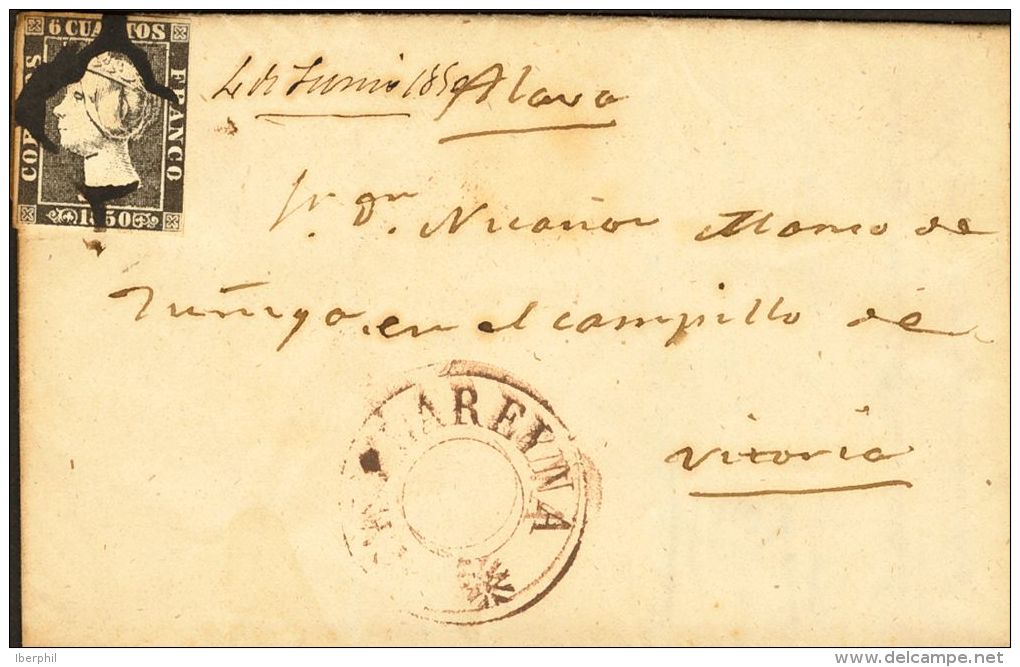 6 CUARTOS
CORREOS
FRANCO
1850
4 de Junio 1850 Alava
Sr. Dn. Nicanor Alonso de
Zuñiga. en el campillo de
Vitoria
LAREYNA
Iberphil
delcampe.net